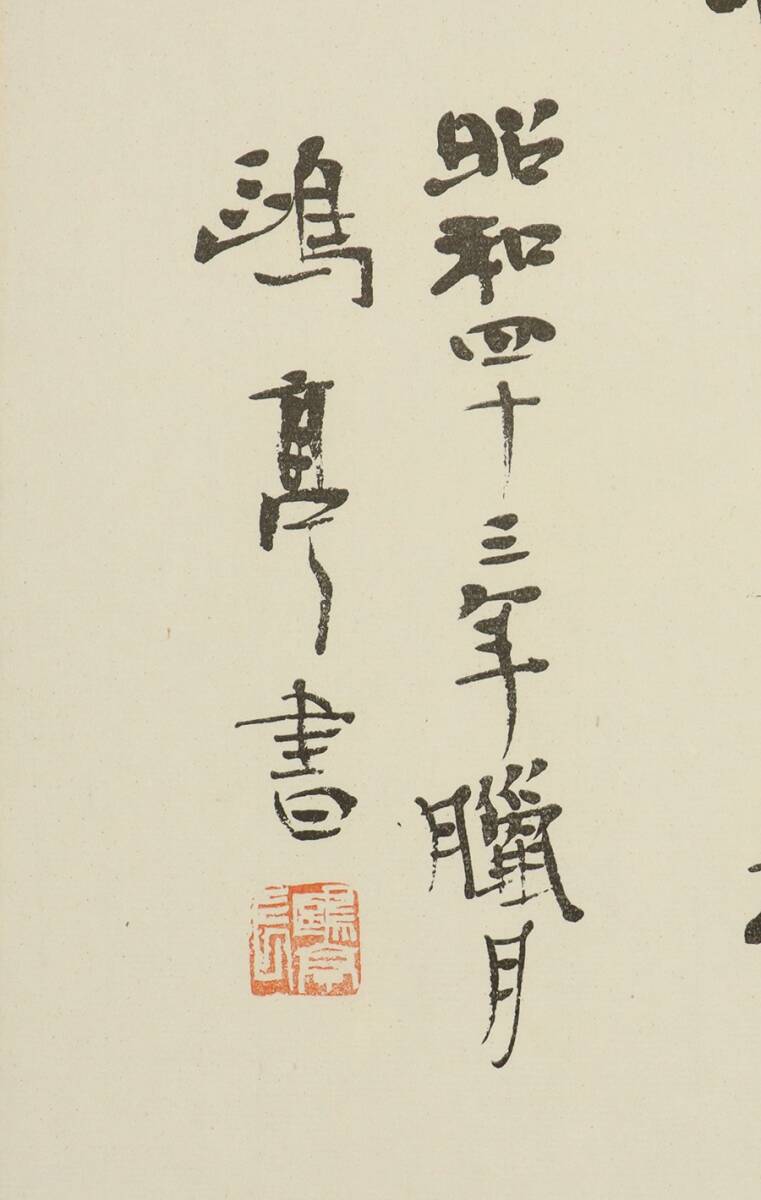 昭和四十三年臘月
鴻亭書